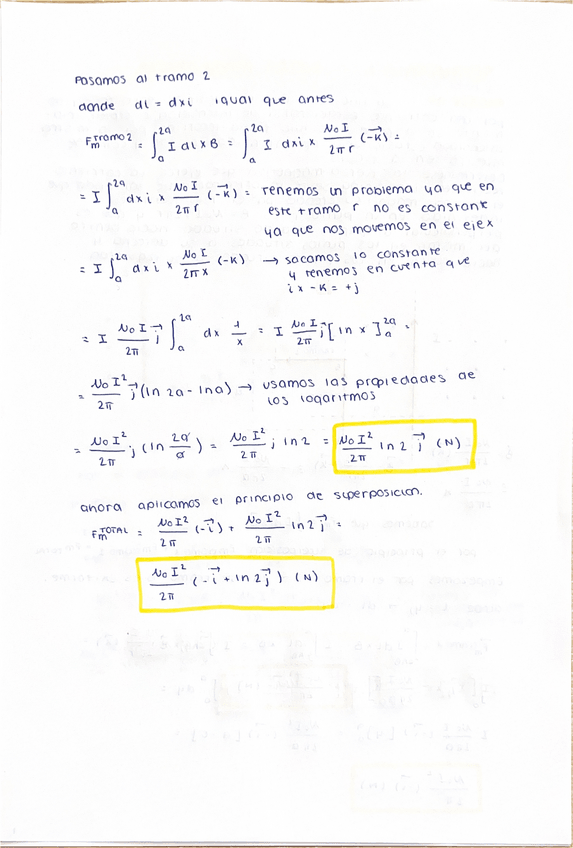 Pasamos al tramo 2
donde dl = dxi igual que antes
Fm^tramo2 = ∫_a^2a I dl x B = ∫_a^2a I dxi x μ0 I / 2πr (-K⃗) =
= I ∫_a^2a dxi x μ0 I / 2πr (-K⃗) = tenemos un problema ya que en
este tramo r no es constante
ya que nos movemos en el ejex
= I ∫_a^2a dxi x μ0 I / 2πx (-K) → sacamos lo constante
y tenemos en cuenta que
i x -K = +j
= I μ0 I / 2π j⃗ ∫_a^2a dx 1/x = I μ0 I / 2π j⃗ [ln x]_a^2a =
= μ0 I² / 2π j⃗ (ln 2a - ln a) → usamos las propiedades de
los logaritmos
= μ0 I² / 2π j (ln 2a/a) = μ0 I² / 2π j ln 2 = μ0 I² / 2π ln 2 j⃗ (N)
ahora aplicamos el principio de superposicion.
Fm^TOTAL = μ0 I² / 2π (-i⃗) + μ0 I² / 2π ln 2 j⃗ =
μ0 I² / 2π (-i⃗ + ln 2 j⃗) (N)